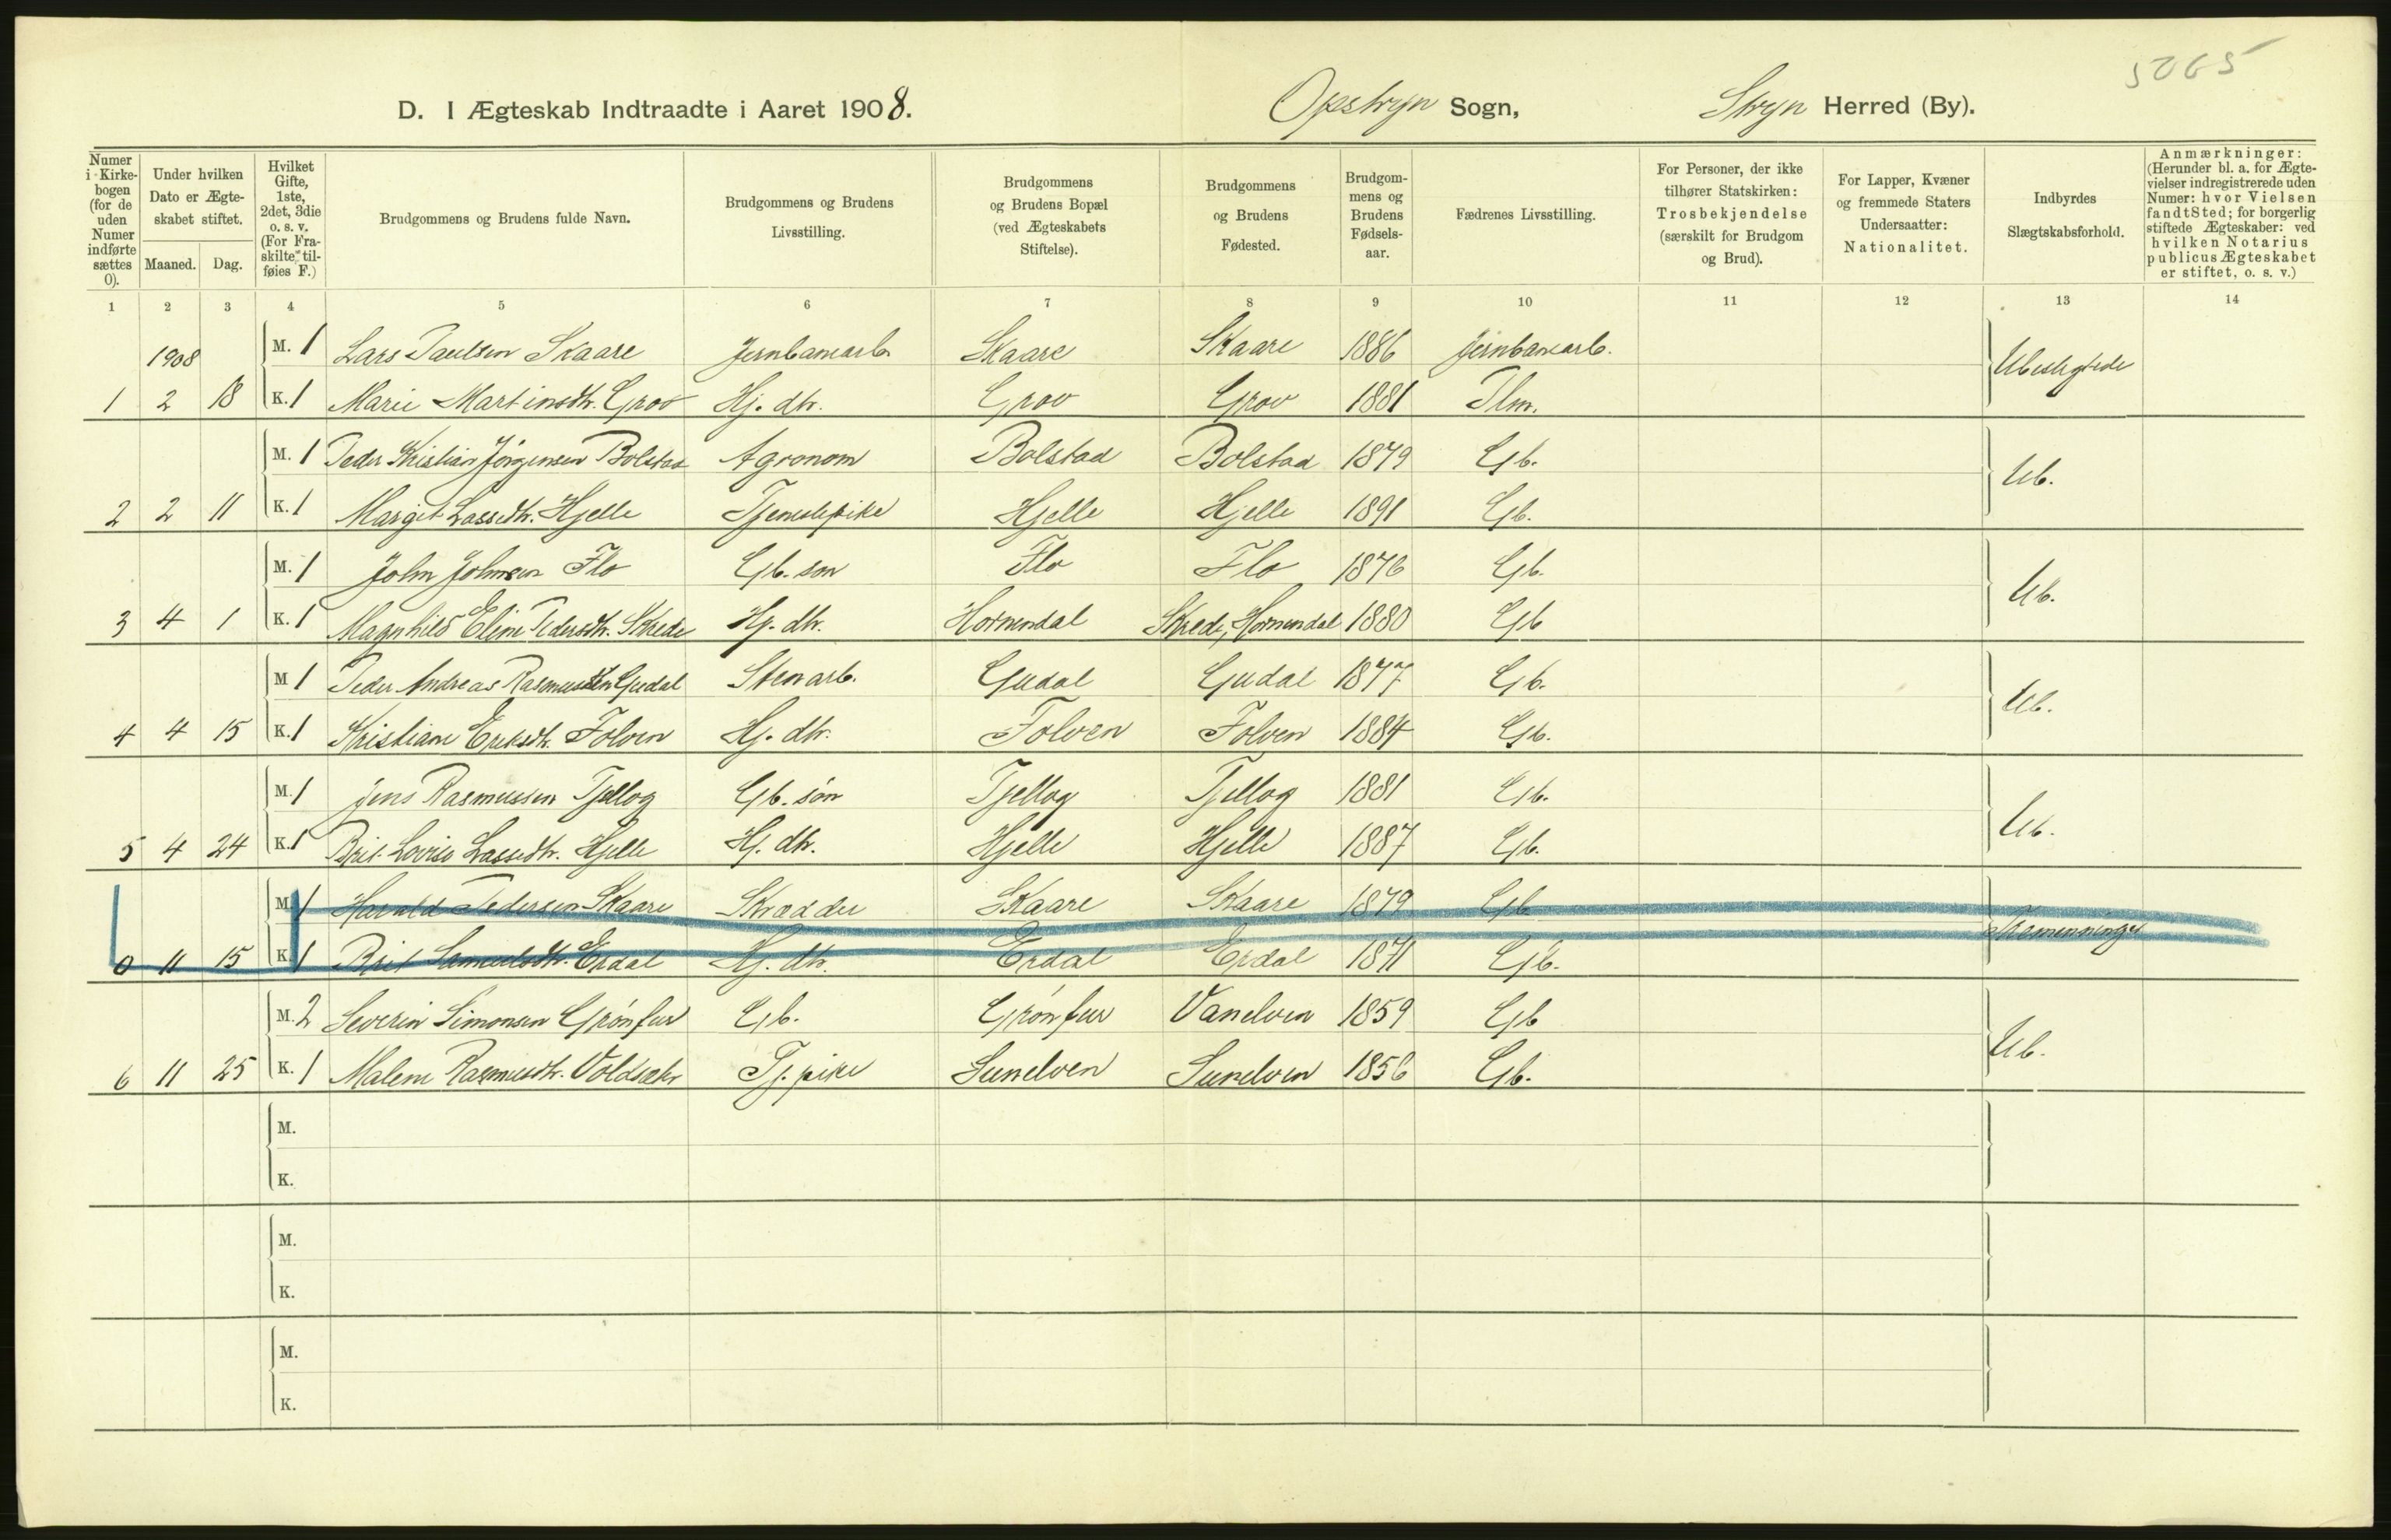 5065
D. I Ægteskab Indtraadte i Aaret 1908. Opstryn Sogn, Stryn Herred (By).
Numer i Kirkebogen (for de uden Numer indførte sættes 0).
Under hvilken Dato er Ægteskabet stiftet.
Maaned. Dag.
Hvilket Gifte, 1ste, 2det, 3die o. s. v. (For Fraskilte tilføies F.)
Brudgommens og Brudens fulde Navn.
Brudgommens og Brudens Livsstilling.
Brudgommens og Brudens Bopæl (ved Ægteskabets Stiftelse).
Brudgommens og Brudens Fødested.
Brudgommens og Brudens Fødselsaar.
Fædrenes Livsstilling.
For Personer, der ikke tilhører Statskirken: Trosbekjendelse (særskilt for Brudgom og Brud).
For Lapper, Kvæner og fremmede Staters Undersaatter: Nationalitet.
Indbyrdes Slægtskabsforhold.
Anmærkninger: (Herunder bl. a. for Ægtevielser indregistrerede uden Numer: hvor Vielsen fandt Sted; for borgerlig stiftede Ægteskaber: ved hvilken Notarius publicus Ægteskabet er stiftet, o. s. v.)
1 2 3 4 5 6 7 8 9 10 11 12 13 14
1908 M. 1 Lars Paulsen Skaare Jernbanearb. Skaare Skaare 1886 Jernbanearb. Ubeslegtede
1 2 18 K. 1 Marie Martinsdtr. Grov Hj. dtr. Grov Grov 1881 Plm.
M. 1 Peder Kristian Jörgensen Bolstad Agronom Bolstad Bolstad 1879 Gb. Ub.
2 2 11 K. 1 Margit Lassedtr. Hjelle Tjenestepike Hjelle Hjelle 1891 Gb.
M. 1 John Johnsen Flo Gb. son Flo Flo 1876 Gb. Ub.
3 4 1 K. 1 Magnhild Eline Pedersdtr. Skrede Hj. dtr. Hornindal Skrede, Hornindal 1880 Gb
M 1 Peder Andreas Rasmussen Gudal Stenarb. Gudal Gudal 1877 Gb. Ub.
4 4 15 K. 1 Kristiane Eriksdtr. Folven Hj. dtr. Folven Folven 1884 Gb.
M. 1 Jens Rasmussen Tjellog Gb. søn Tjellog Tjellog 1881 Gb. Ub.
5 4 24 K. 1 Brit Lovise Lassedtr. Hjelle Hj. dtr. Hjelle Hjelle 1887 Gb.
M. 1 Harald Pedersen Skaare Skrædder Skaare Skaare 1879 Gb. Tremenninger
0 11 15 K. 1 Brit Samuelsdtr. Erdal Hj. dtr. Erdal Erdal 1871 Gb.
M. 2 Severin Simonsen Grønfur Gb. Grønfur Vanelven 1859 Gb Ub.
6 11 25 K. 1 Malene Rasmusdtr. Voldsæter Tj. pike Sunelven Sunelven 1856 Gb.
M.
K.
M.
K.
M.
K.